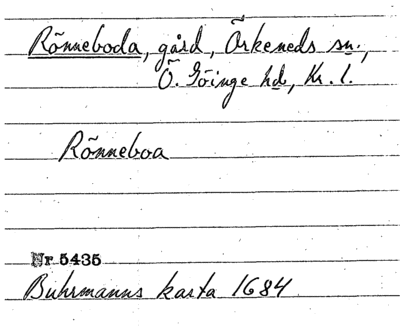 Rõnneboda, gård, Õrkeneds sn.,
Õ. Göinge hd, Kr. l.
Rõnneboa
Nr 5435
Buhrmanns karta 1684